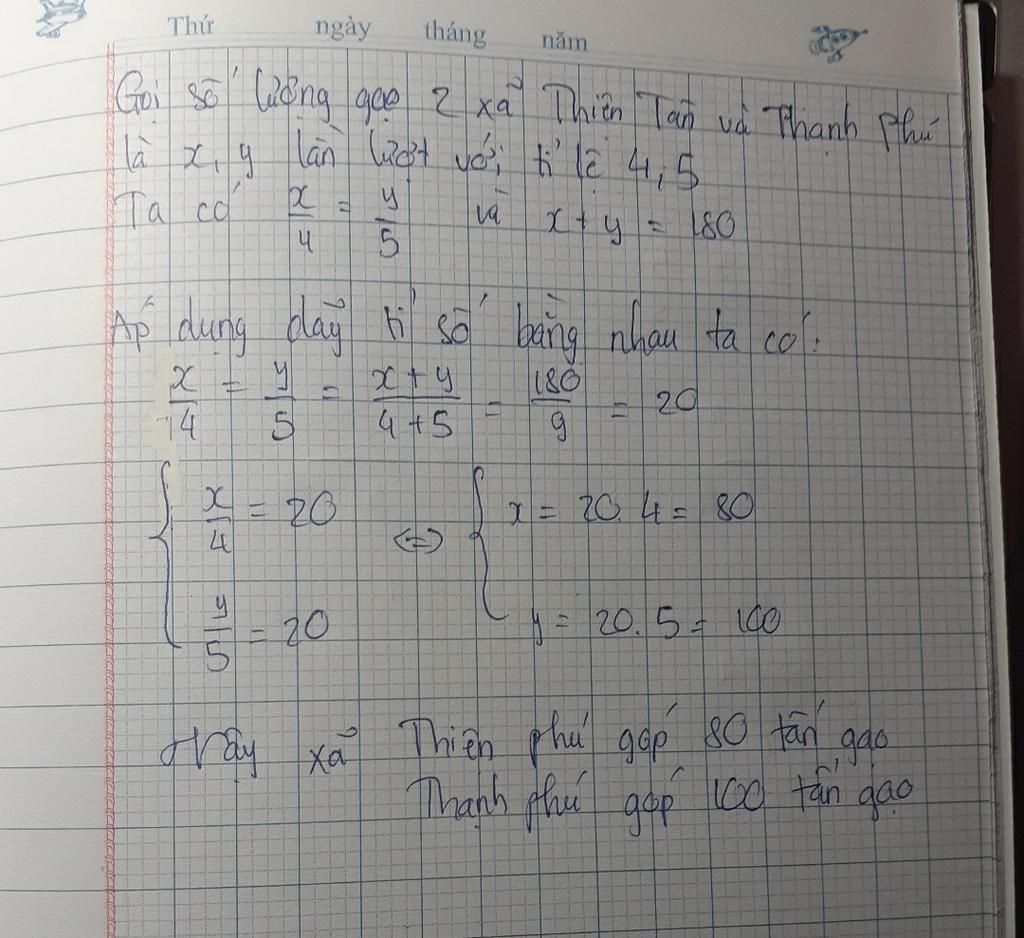 Thứ ngày tháng năm
Gọi số lượng gạo 2 xã Thiện Tân và Thạnh Phú
là x, y lần lượt với tỉ lệ 4, 5
Ta có x/4 = y/5 và x + y = 180
Áp dụng dãy tỉ số bằng nhau ta có:
x/4 = y/5 = (x + y)/(4 + 5) = 180/9 = 20
{ x/4 = 20 <=> { x = 20. 4 = 80
y/5 = 20 y = 20. 5 = 100
Vậy xã Thiện phú góp 80 tấn gạo
Thạnh phú góp 100 tấn gạo